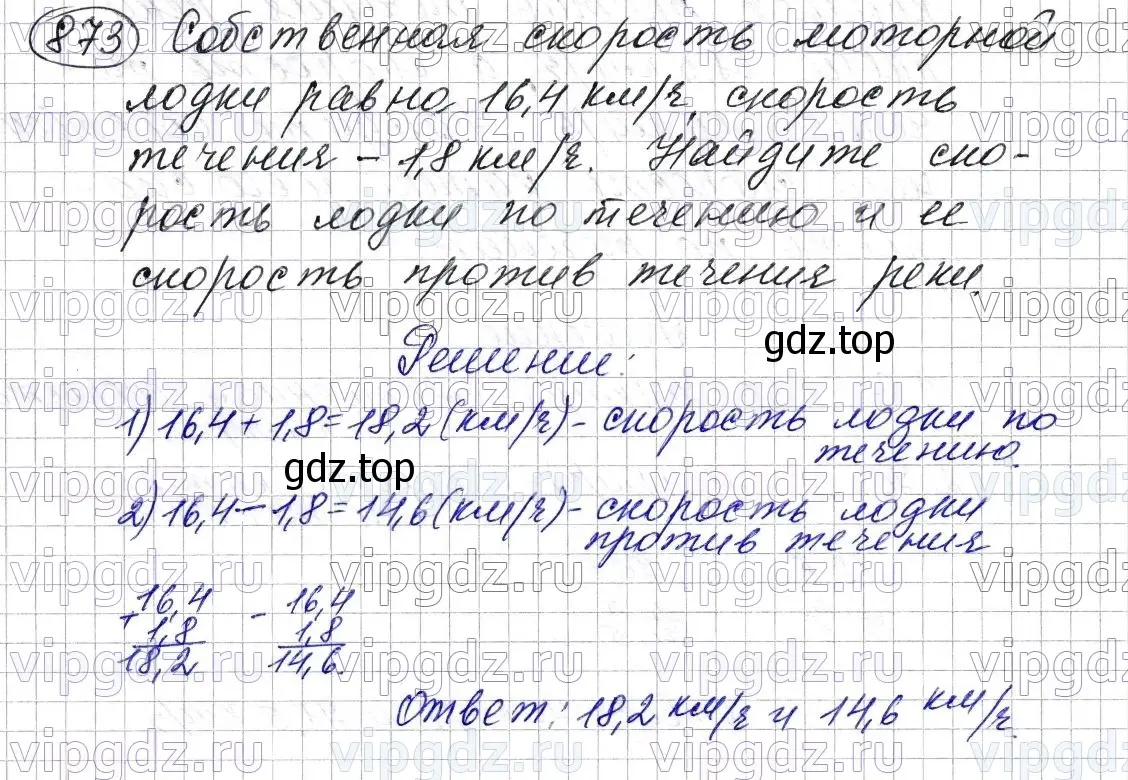 873 Собственная скорость моторной
лодки равна 16,4 км/ч, скорость
течения – 1,8 км/ч. Найдите ско-
рость лодки по течению и ее
скорость против течения реки.
Решение:
gdz.top
1) 16,4 + 1,8 = 18,2 (км/ч) – скорость лодки по
течению.
gdz.top
2) 16,4 – 1,8 = 14,6 (км/ч) – скорость лодки
против течения
+ 16,4 – 16,4
1,8 1,8
18,2 14,6
Ответ: 18,2 км/ч и 14,6 км/ч.
vipgdz.ru